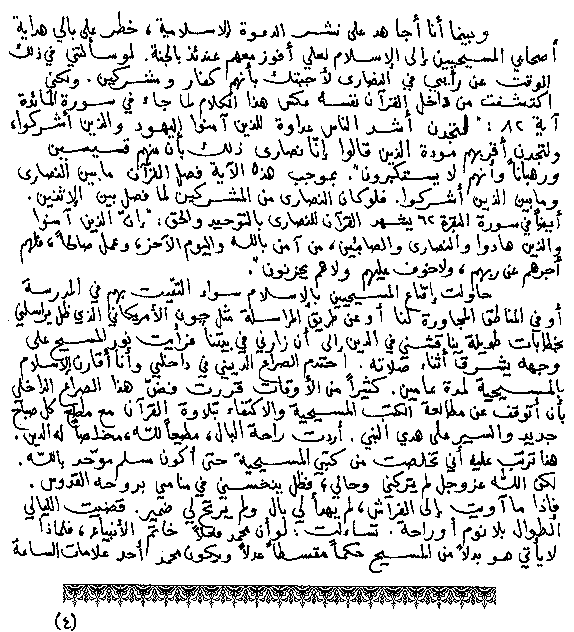 وبينما أنا أجاهد على نشر الدعوة الإسلامية، خطر على بالي هداية
أصحابي المسيحيين إلى الإسلام لعلي أفوز معهم عندئذ بالجنة. لو سألتني في ذلك
الوقت عن رأيي في النصارى لأجبتك بأنهم كفار ومشركين. ولكني
اكتشفت من داخل القرآن نفسه عكس هذا الكلام لما جاء في سورة المائدة
آية ٨٢: "لتجدن أشد الناس عداوة للذين آمنوا اليهود والذين أشركوا،
ولتجدن أقربهم مودة الذين قالوا إنا نصارى ذلك بأن منهم قسيسين
ورهبانا وأنهم لا يستكبرون". بموجب هذه الآية فصل القرآن ما بين النصارى
وما بين الذين أشركوا. فلو كان النصارى من المشركين لما فصل بين الإثنين.
أيضاً في سورة البقرة ٦٢ يشهد القرآن للنصارى بالتوحيد والحق: "إن الذين آمنوا
والذين هادوا والنصارى والصابئين، من آمن بالله واليوم الآخر، وعمل صالحاً، فلهم
أجرهم عن ربهم، ولا خوف عليهم ولا هم يحزنون".
حاولت إقناع المسيحيين بالإسلام سواء التقيت بهم في المدرسة
أو في المناطق المجاورة لنا أو عن طريق المراسلة مثل جون الأمريكاني الذي ظل يراسلني
بخطابات طويلة يناقشني في الدين إلى أن زارني في بيتنا فرأيت نور المسيح على
وجهه يشرق أثناء صلاته. احتدم الصراع الديني في داخلي وأنا أقارن الإسلام
بالمسيحية لمدة عامين. كثيراً من الأوقات قررت فض هذا الصراع الداخلي
بأن أتوقف عن مطالعة الكتب المسيحية والاكتفاء بتلاوة القرآن مع مطلع كل صباح
جديد والسير على هدي النبي. أردت راحة البال، مطيعاً لله، مخلصاً له الدين.
هذا ترتب عليه أني تخلصت من كتبي المسيحية حتى أكون مسلم موحد بالله.
لكن الله عز وجل لم يتركني وحالي؛ فظل ينخسني في منامي بروحه القدوس.
فإذا ما آويت إلى الفراش، لم يهدأ لي بال ولم يرتح لي ضمير. قضيت الليالي
الطوال بلا نوم أو راحة. تساءلت: لو أن محمد فعلاً خاتم الأنبياء، فلماذا
لا يأتي هو بدلاً من المسيح حكماً مقسطاً عدلاً ويكون محمد أحد علامات الساعة
(٤)